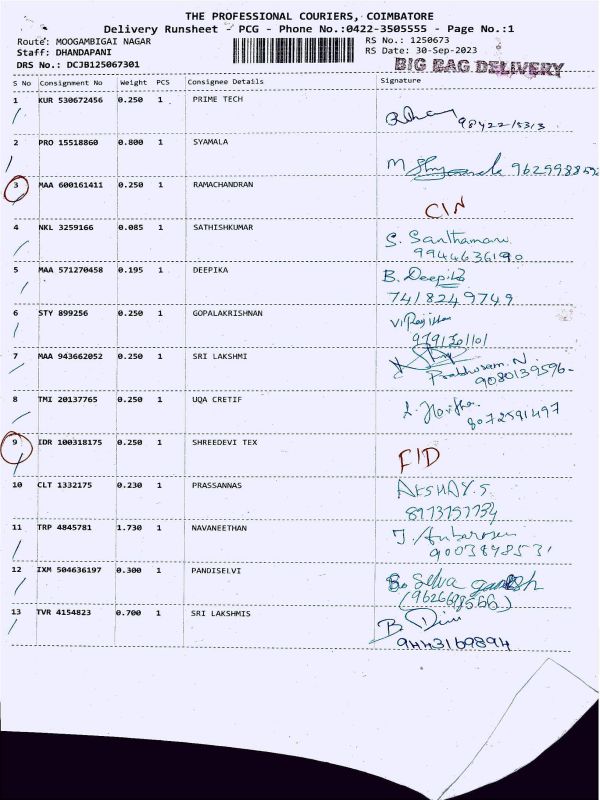 THE PROFESSIONAL COURIERS, COIMBATORE
Delivery Runsheet - PCG - Phone No.:0422-3505555 - Page No.:1
Route: MOOGAMBIGAI NAGAR RS No.: 1250673
Staff: DHANDAPANI RS Date: 30-Sep-2023
DRS No.: DCJB125067301 BIG BAG DELIVERY
S No Consignment No Weight PCS Consignee Details Signature
1 KUR 530672456 0.250 1 PRIME TECH
2 PRO 15518860 0.800 1 SYAMALA
3 MAA 600161411 0.250 1 RAMACHANDRAN
4 NKL 3259166 0.085 1 SATHISHKUMAR S.
9944636190
5 MAA 571270458 0.195 1 DEEPIKA B. Deepika
7418249749
6 STY 899256 0.250 1 GOPALAKRISHNAN
9791301101
7 MAA 943662052 0.250 1 SRI LAKSHMI
Prabhuram. N.
9080139596
8 TMI 20137765 0.250 1 UQA CRETIF
8072591497
9 IDR 100318175 0.250 1 SHREEDEVI TEX
10 CLT 1332175 0.230 1 PRASSANNAS AKSHAY. S
11 TRP 4845781 1.730 1 NAVANEETHAN
12 IXM 504636197 0.300 1 PANDISELVI Selva ganesh
13 TVR 4154823 0.700 1 SRI LAKSHMIS
9443169894